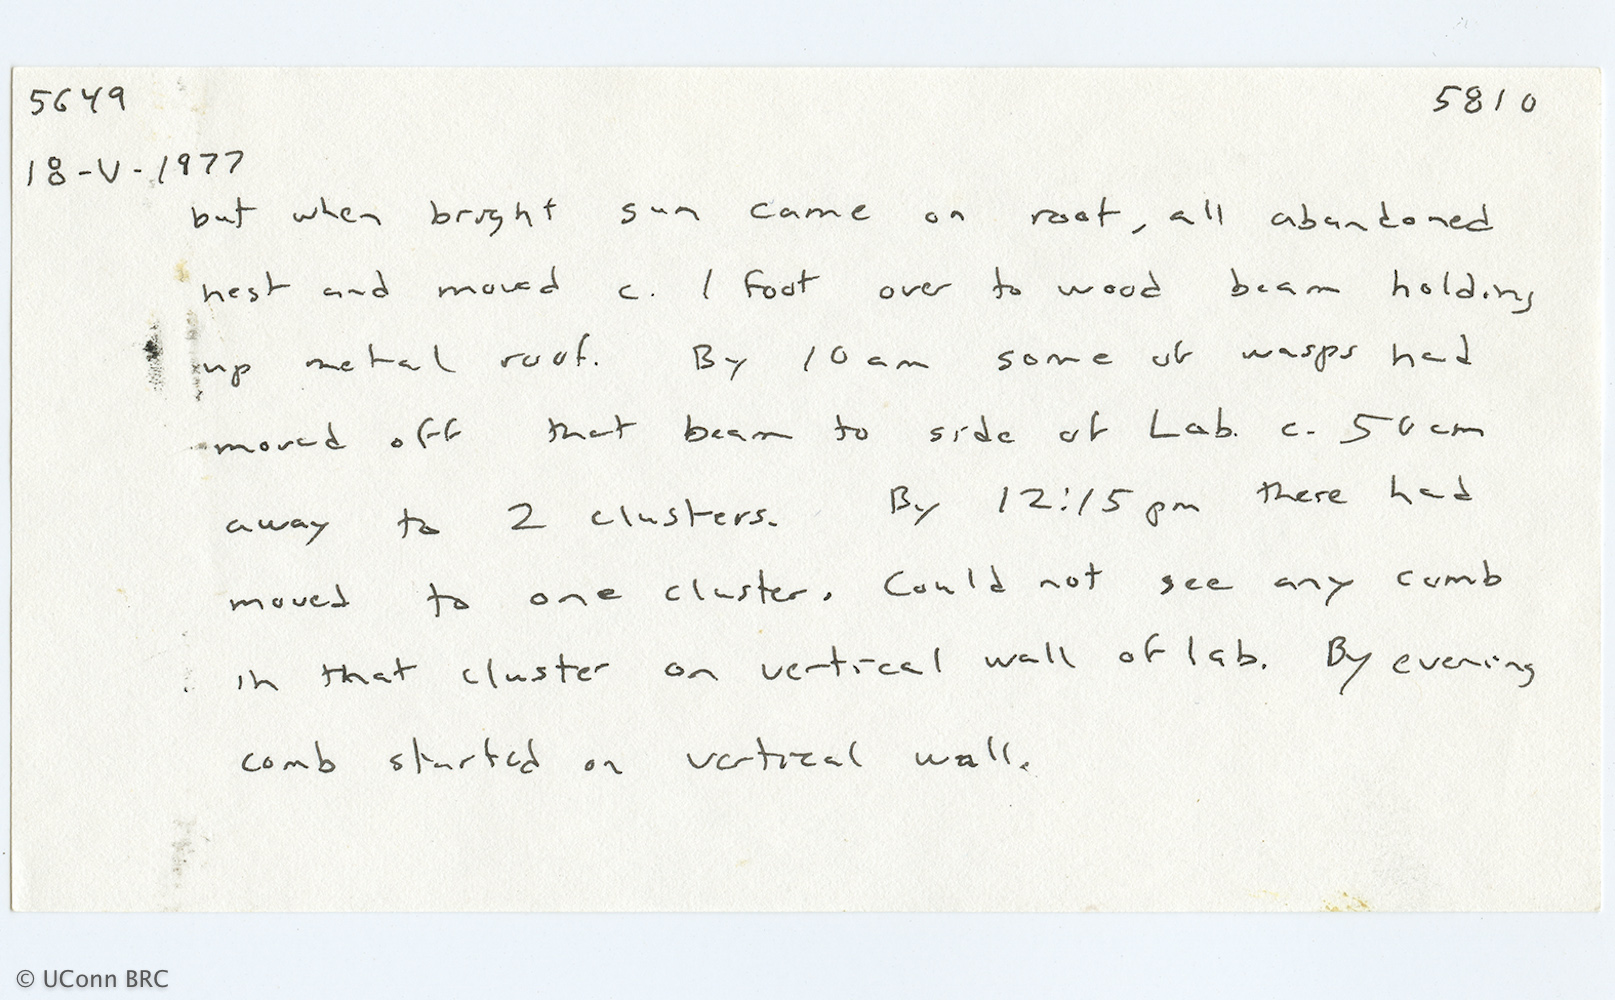 5649 5810
18-V-1977
but when bright sun came on roof, all abandoned
nest and moved c. 1 foot over to wood beam holding
up metal roof. By 10 am some of wasps had
moved off that beam to side of Lab. c. 50 cm
away to 2 clusters. By 12:15 pm there had
moved to one cluster. Could not see any comb
in that cluster on vertical wall of lab. By evening
comb started on vertical wall.
© UConn BRC